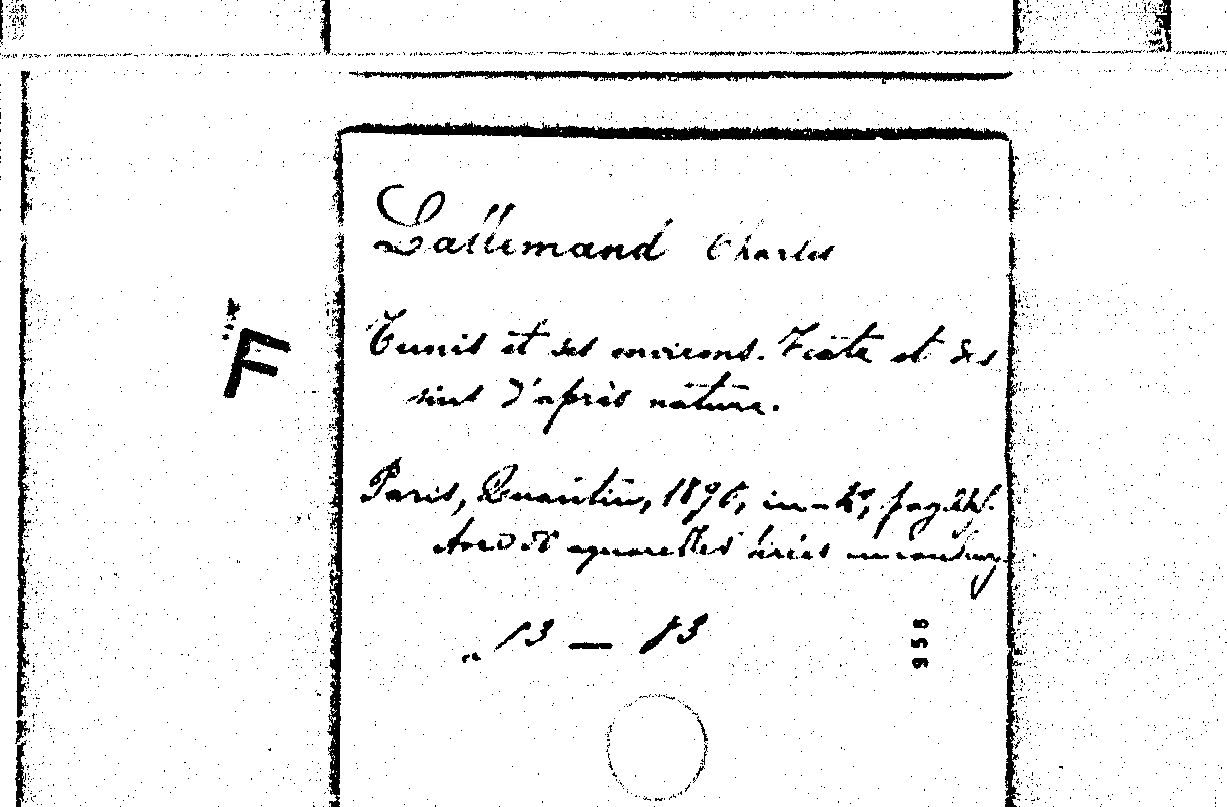 Lallemand Charles
F
Tunis et ses environs. Texte et des
sins d'après nature.
Paris, Quantin, 1890, in-4°,
aquarelles tirées en couleurs
13 — 13
958